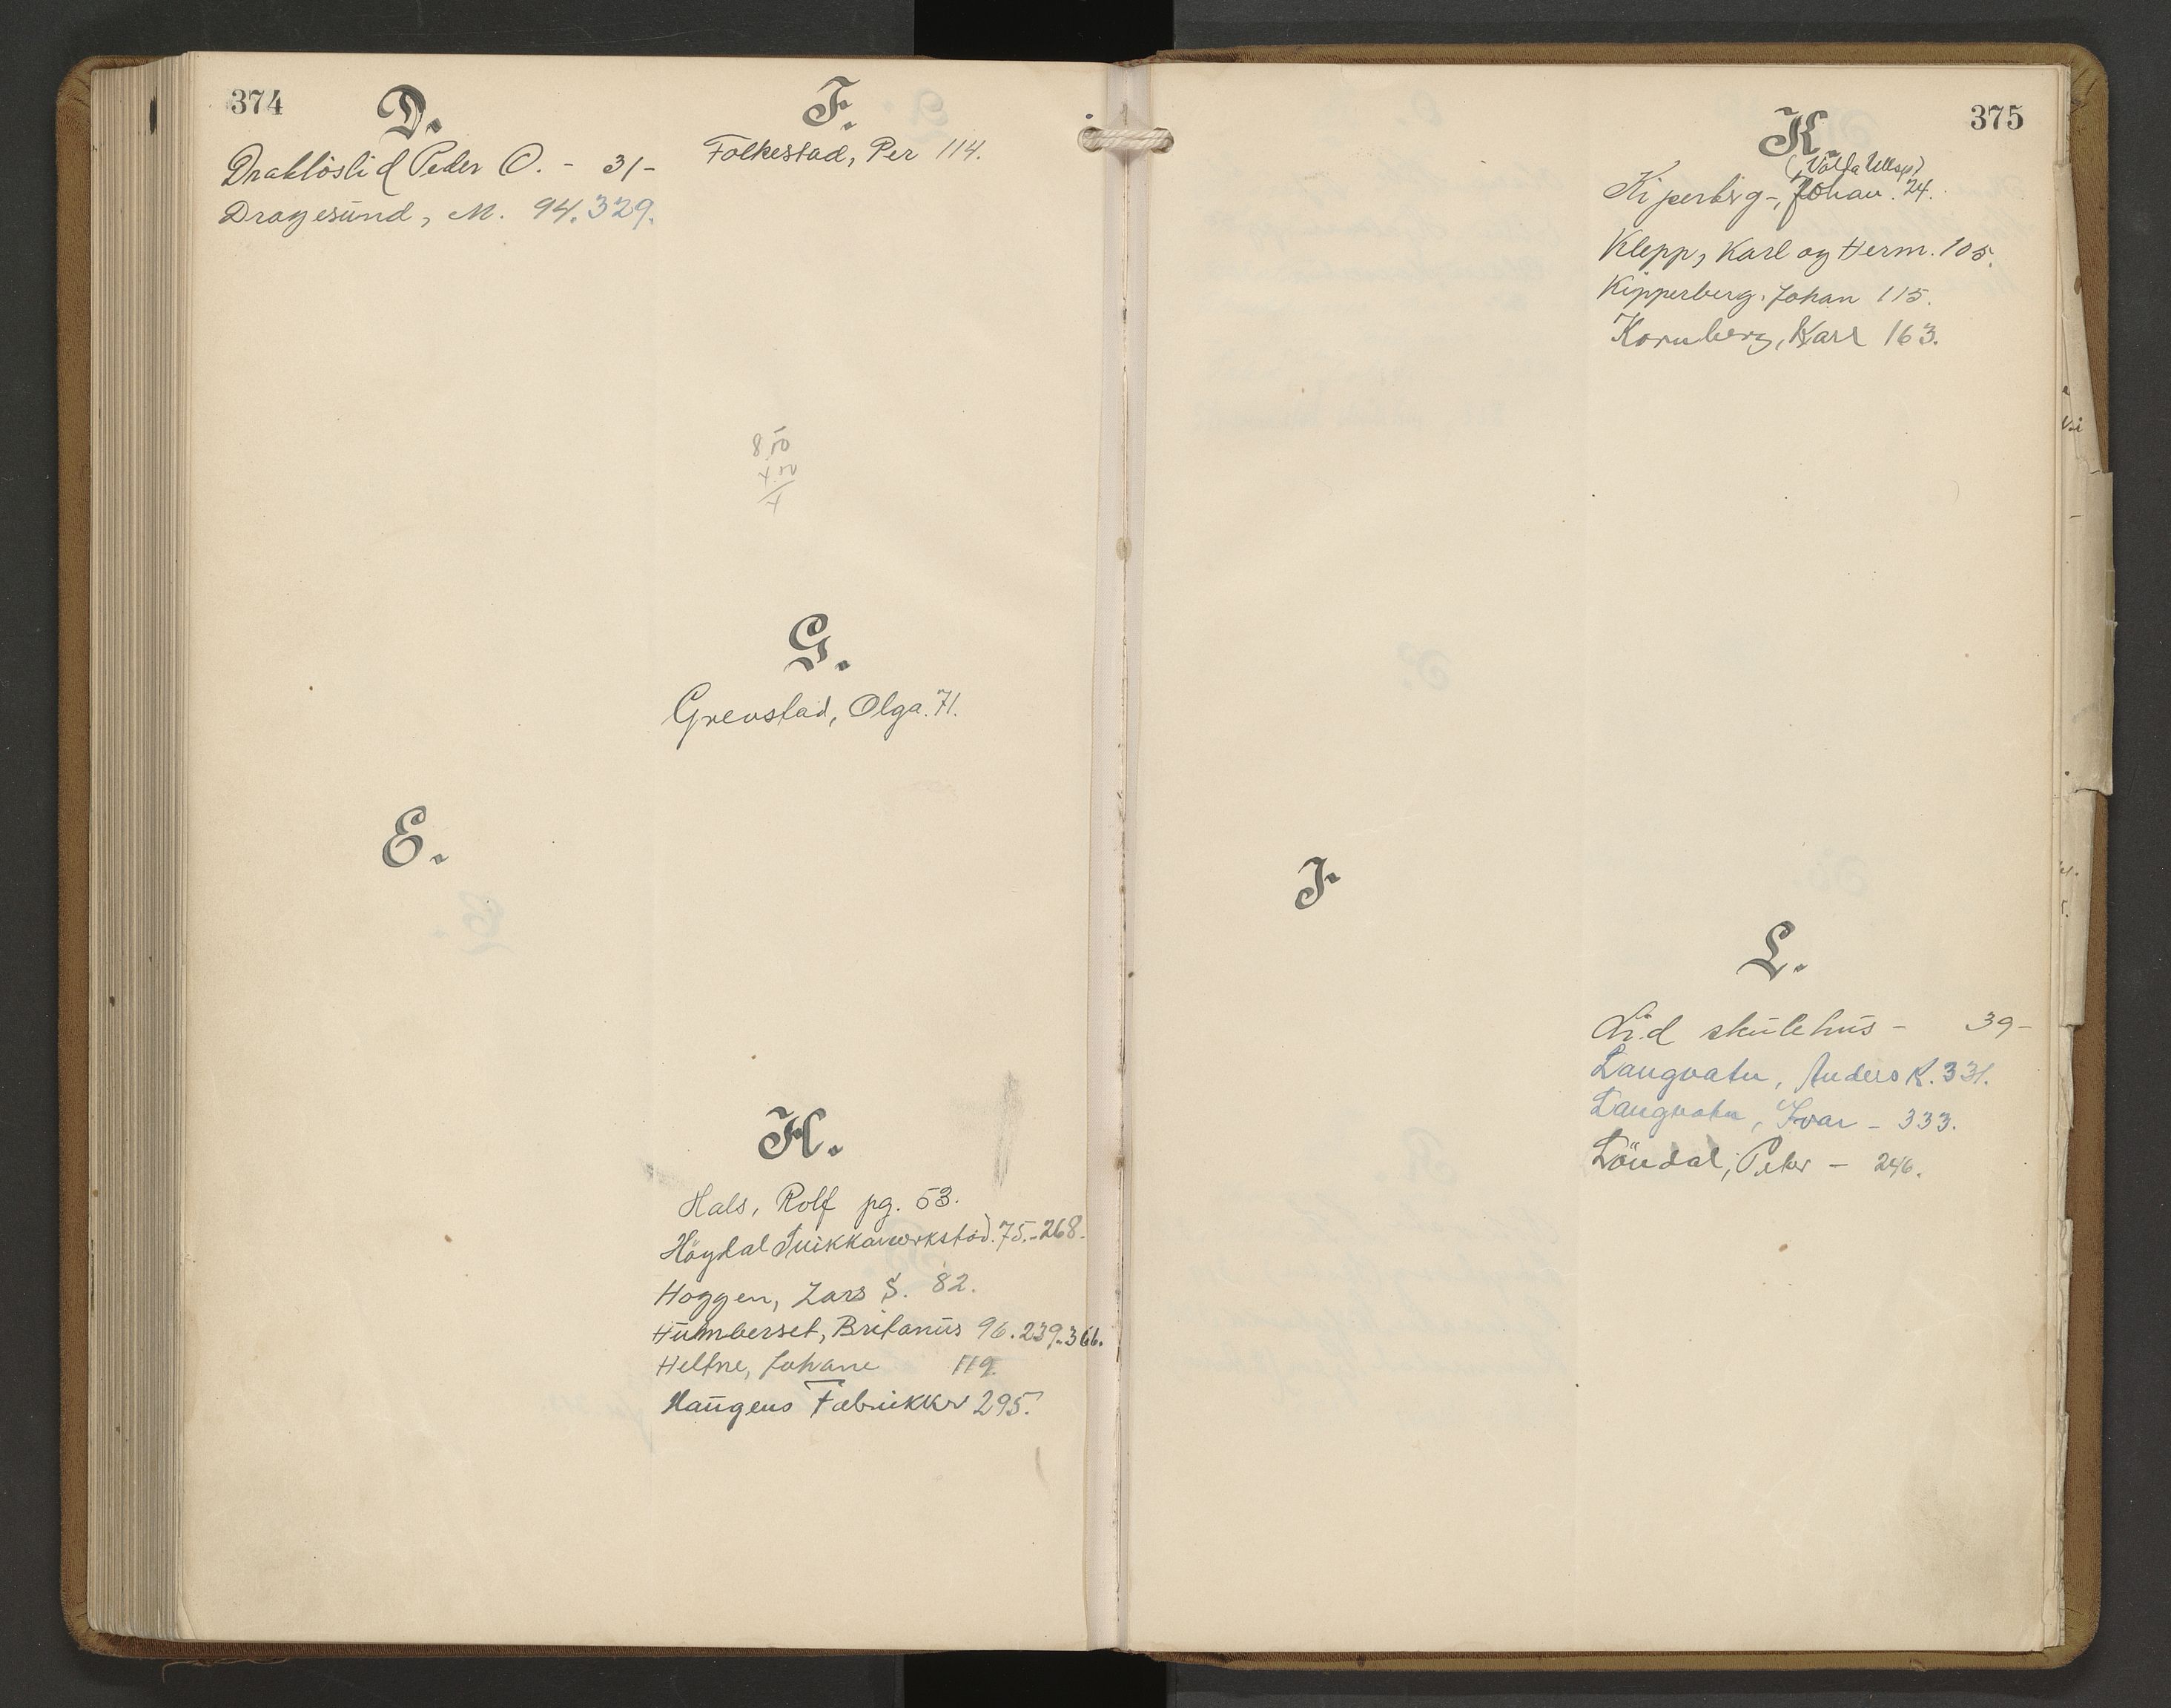 374
D.
Drabløslid Peder O. - 31 -
Dragesund, M. 94. 329.
E.
F.
Folkestad, Per 114.
8,50
G.
Grevstad, Olga. 71.
H.
Hals, Rolf pg. 53.
Höydal Snikkarverkstad. 75.-268.
Hoggen, Lars S. 82.
Humberset, Britanus 96. 239. 366.
Heltne, Johane 119.
Haugens Fabrikker 295.
375
J.
K.
(Volda Ullsp)
Kiperberg -, Johan. 24.
Klepp, Karl og Herm. 105.
Kipperberg, Johan 115.
Kornberg, Karl 163.
L.
Lid skulehus - 39 -
Langvatn, Anders K. 331.
Langvatn, Ivar - 333.
Löndal, Peter - 246.